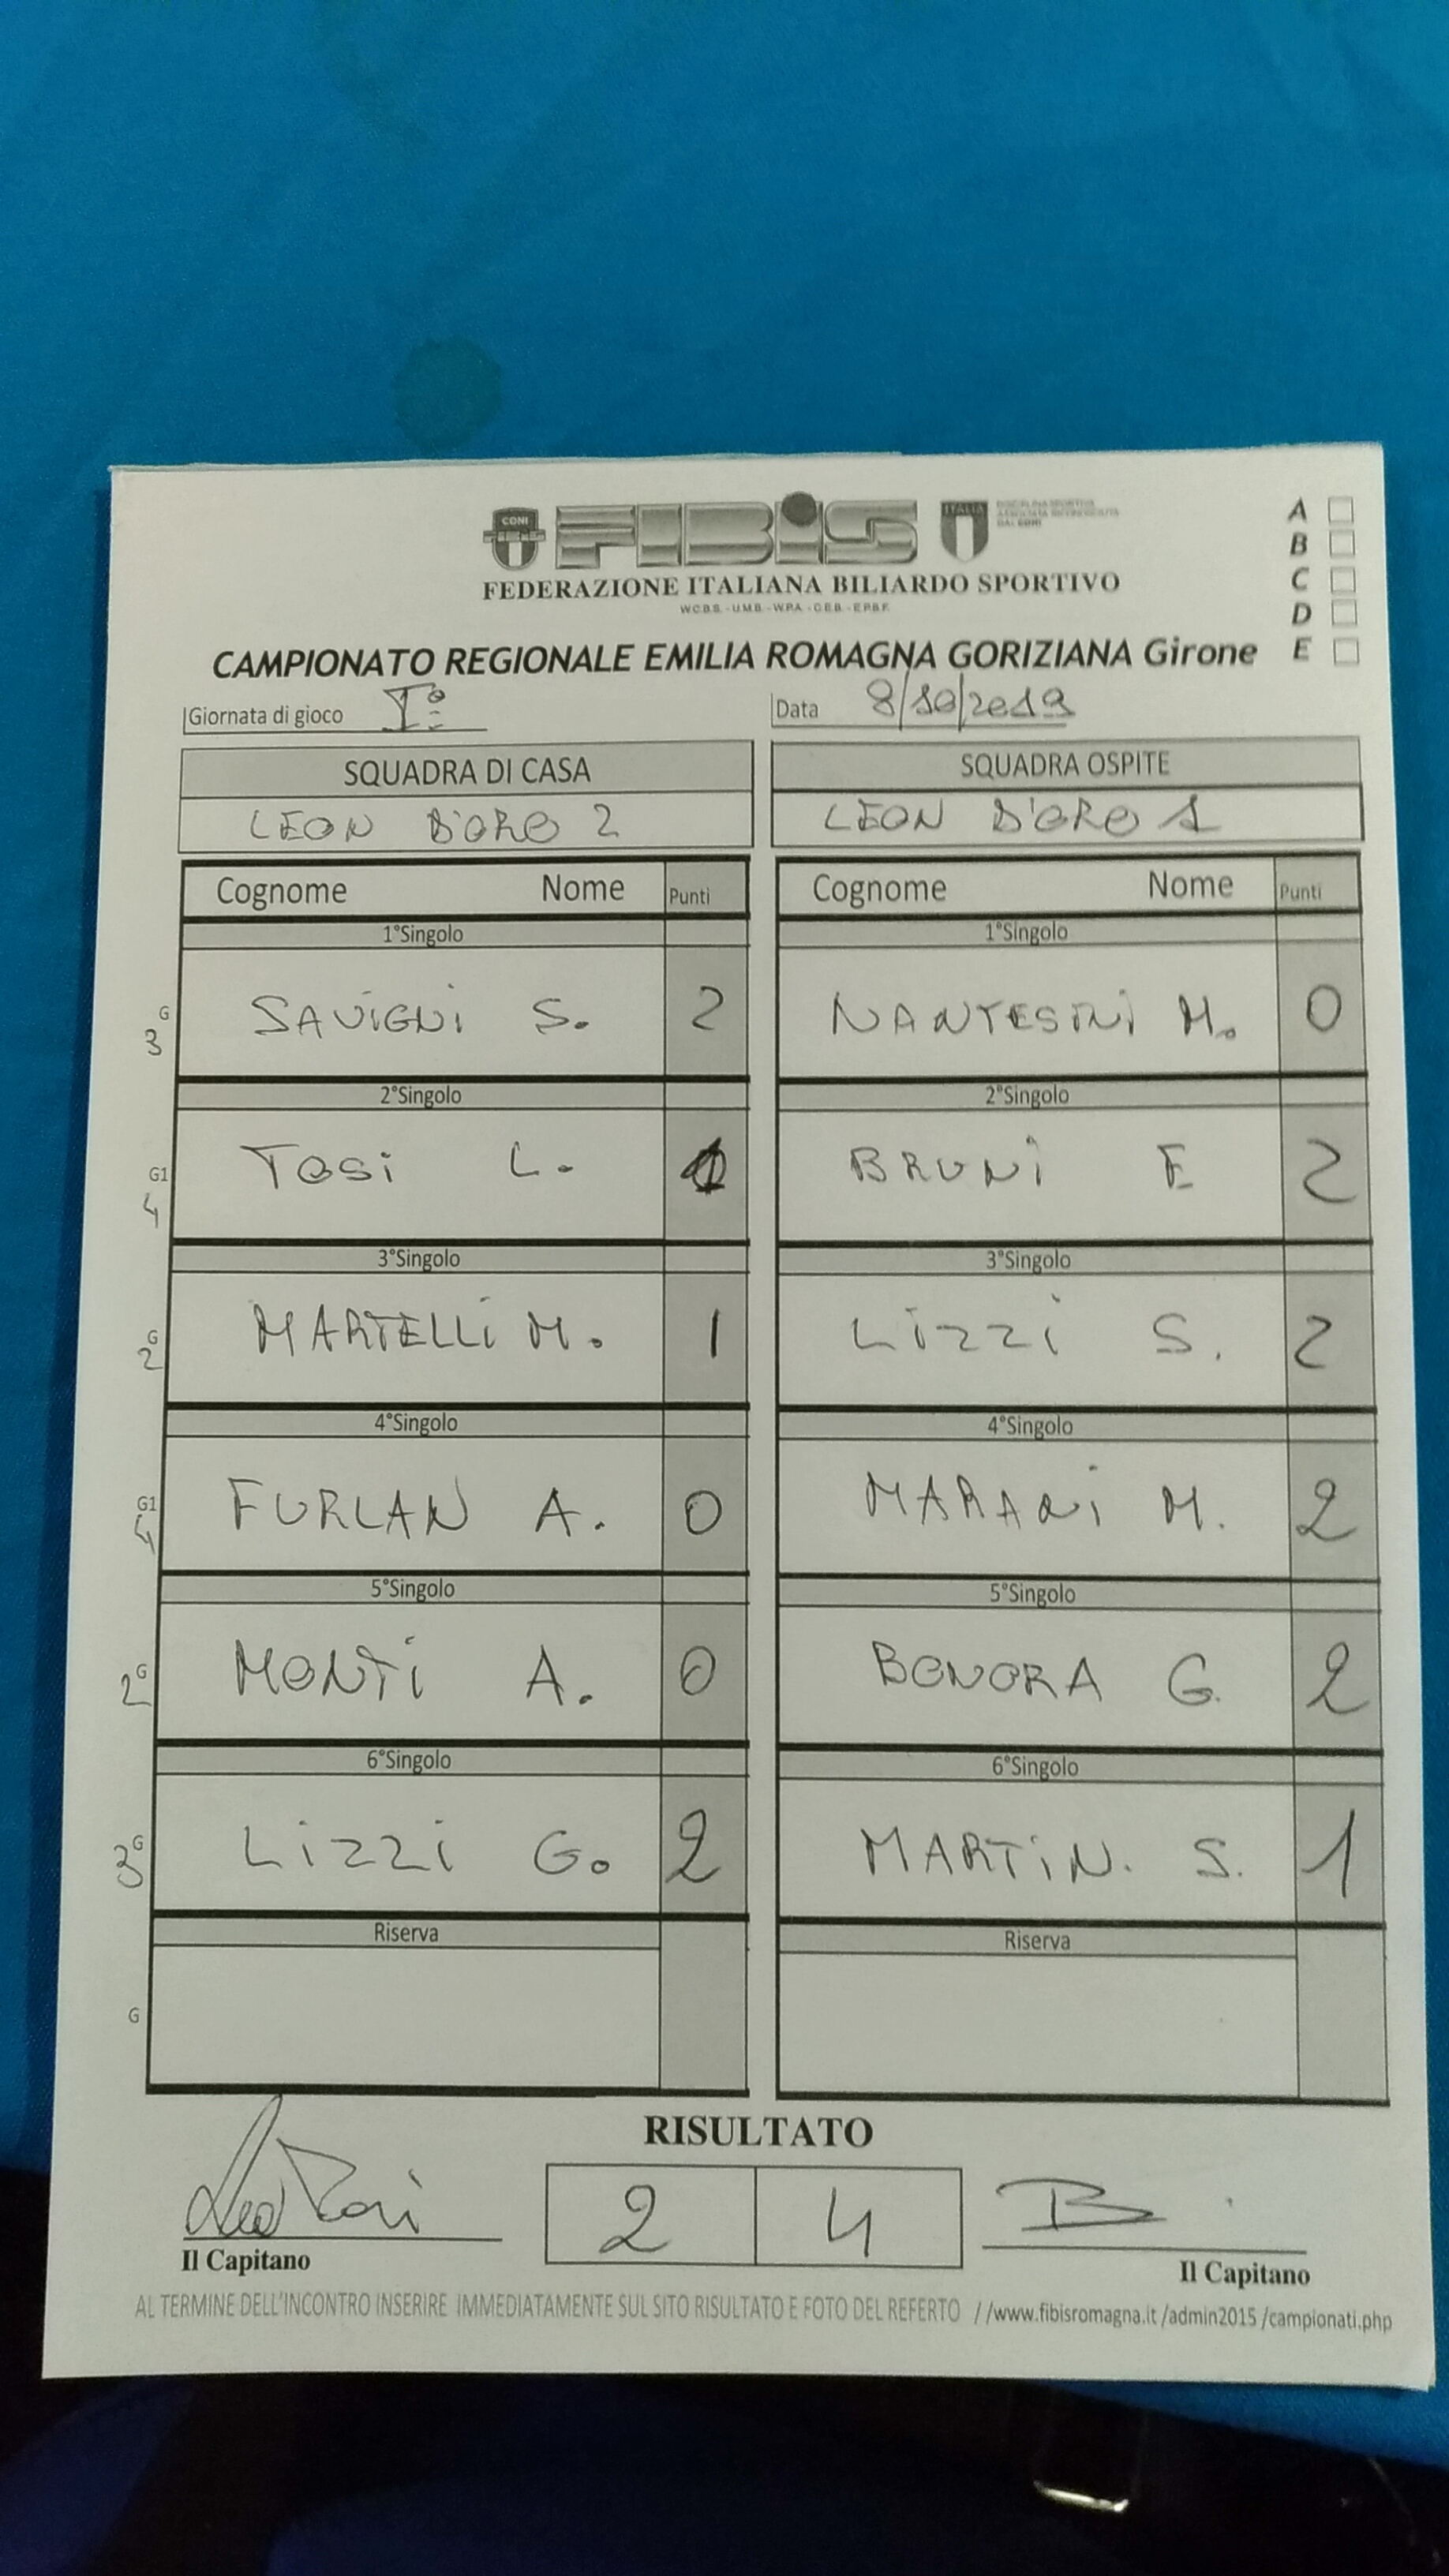 CONI
FIBiS
ITALIA
DISCIPLINA SPORTIVA
ASSOCIATA RICONOSCIUTA
DAL CONI
FEDERAZIONE ITALIANA BILIARDO SPORTIVO
W.C.B.S. - U.M.B. - W.P.A. - C.E.B. - E.P.B.F.
A
B
C
D
E
CAMPIONATO REGIONALE EMILIA ROMAGNA GORIZIANA Girone
Giornata di gioco I° Data 8/10/2019
SQUADRA DI CASA SQUADRA OSPITE
LEON D'ORO 2 LEON D'ORO 1
Cognome Nome Punti Cognome Nome Punti
1°Singolo 1°Singolo
G 3 SAVIGNI S. 2 M. 0
2°Singolo 2°Singolo
G1 4 TOSI L. BRUNI E 2
3°Singolo 3°Singolo
G 2 MARTELLI M. 1 LIZZI S. 2
4°Singolo 4°Singolo
G1 4 FURLAN A. 0 MARANI M. 2
5°Singolo 5°Singolo
G 2 MONTI A. 0 BONORA G. 2
6°Singolo 6°Singolo
G 3 LIZZI G. 2 MARTIN. S. 1
Riserva Riserva
G
RISULTATO
2 4
Il Capitano Il Capitano
AL TERMINE DELL'INCONTRO INSERIRE IMMEDIATAMENTE SUL SITO RISULTATO E FOTO DEL REFERTO //www.fibisromagna.it /admin2015 /campionati.php